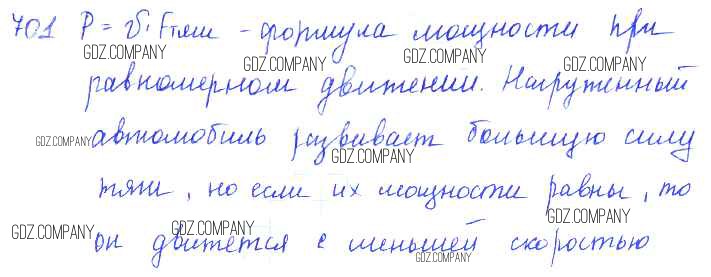 701 P = v · Fтяги - формула мощности при
равномерном движении. Нагруженный
автомобиль развивает большую силу
тяги, но если их мощности равны, то
он движется с меньшей скоростью
GDZ.COMPANY
GDZ.COMPANY
GDZ.COMPANY
GDZ.COMPANY
GDZ.COMPANY
GDZ.COMPANY
GDZ.COMPANY
GDZ.COMPANY
GDZ.COMPANY
GDZ.COMPANY
GDZ.COMPANY